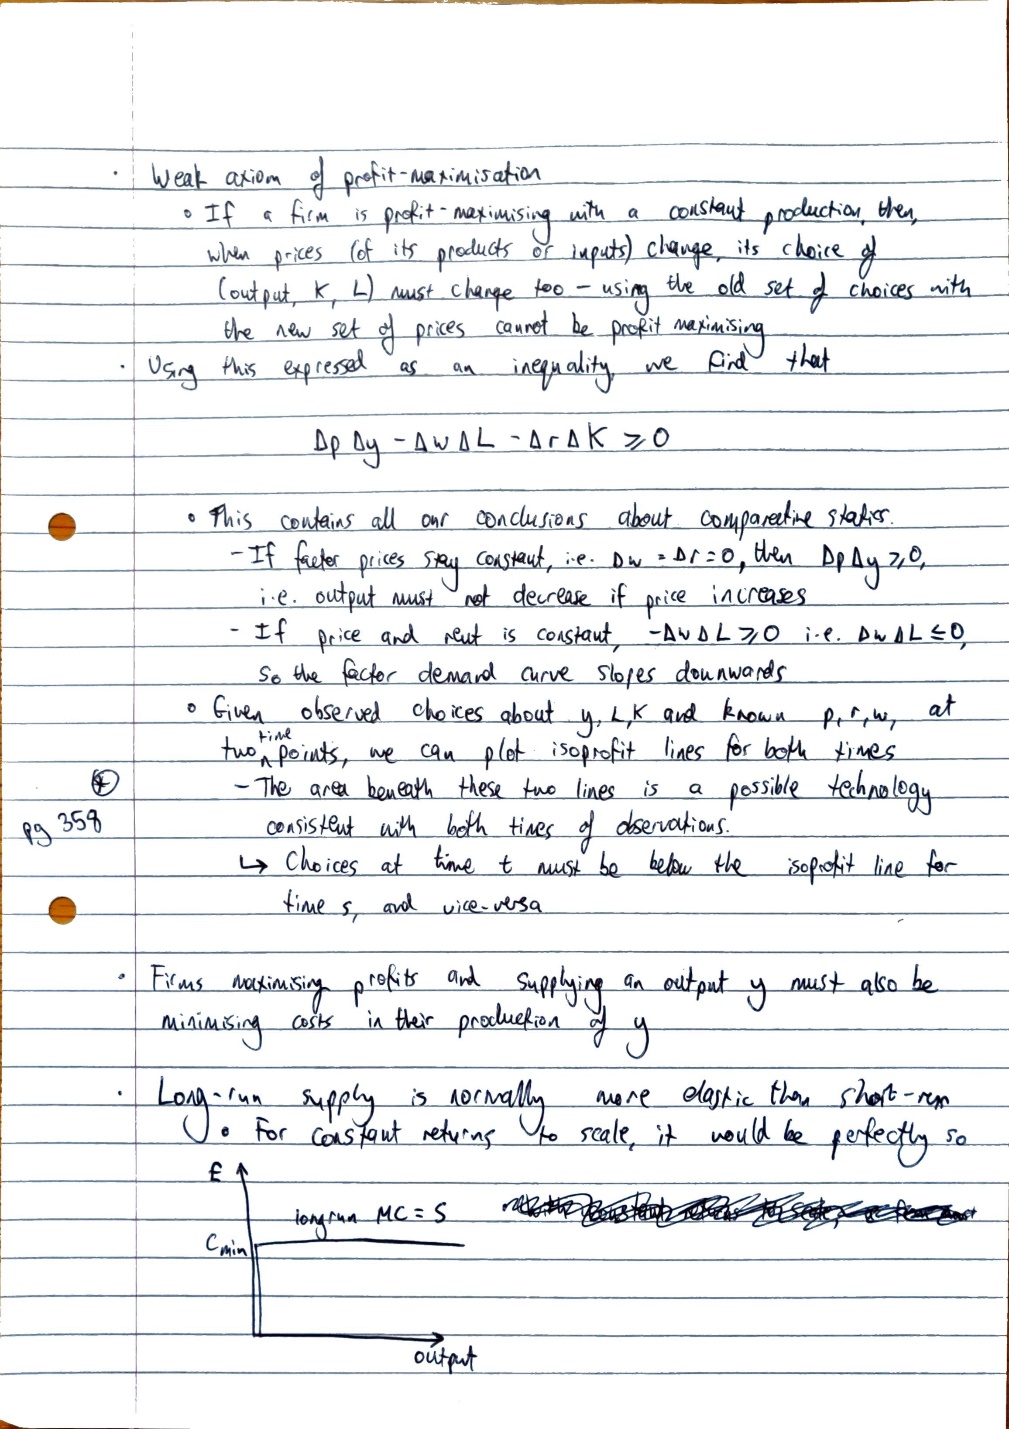 · Weak axiom of profit-maximisation
◦ If a firm is profit-maximising with a constant production, then,
when prices (of its products or inputs) change, its choice of
(output, K, L) must change too – using the old set of choices with
the new set of prices cannot be profit maximising
· Using this expressed as an inequality, we find that
Δp Δy – Δw ΔL – Δr ΔK ⩾ 0
◦ This contains all our conclusions about comparative statics.
– If factor prices stay constant, i.e. Δw = Δr = 0, then Δp Δy ⩾ 0,
i.e. output must not decrease if price increases
– If price and rent is constant, –Δw ΔL ⩾ 0 i.e. Δw ΔL ≤ 0,
so the factor demand curve slopes downwards
◦ Given observed choices about y, L, K and known p, r, w, at
two time points, we can plot isoprofit lines for both times
– The area beneath these two lines is a possible technology
pg 358
consistent with both times of observations.
↳ Choices at time t must be below the isoprofit line for
time s, and vice-versa
· Firms maximising profits and supplying an output y must also be
minimising costs in their production of y
· Long-run supply is normally more elastic than short-run
◦ For constant returns to scale, it would be perfectly so
£
long run MC = S
Cmin
output